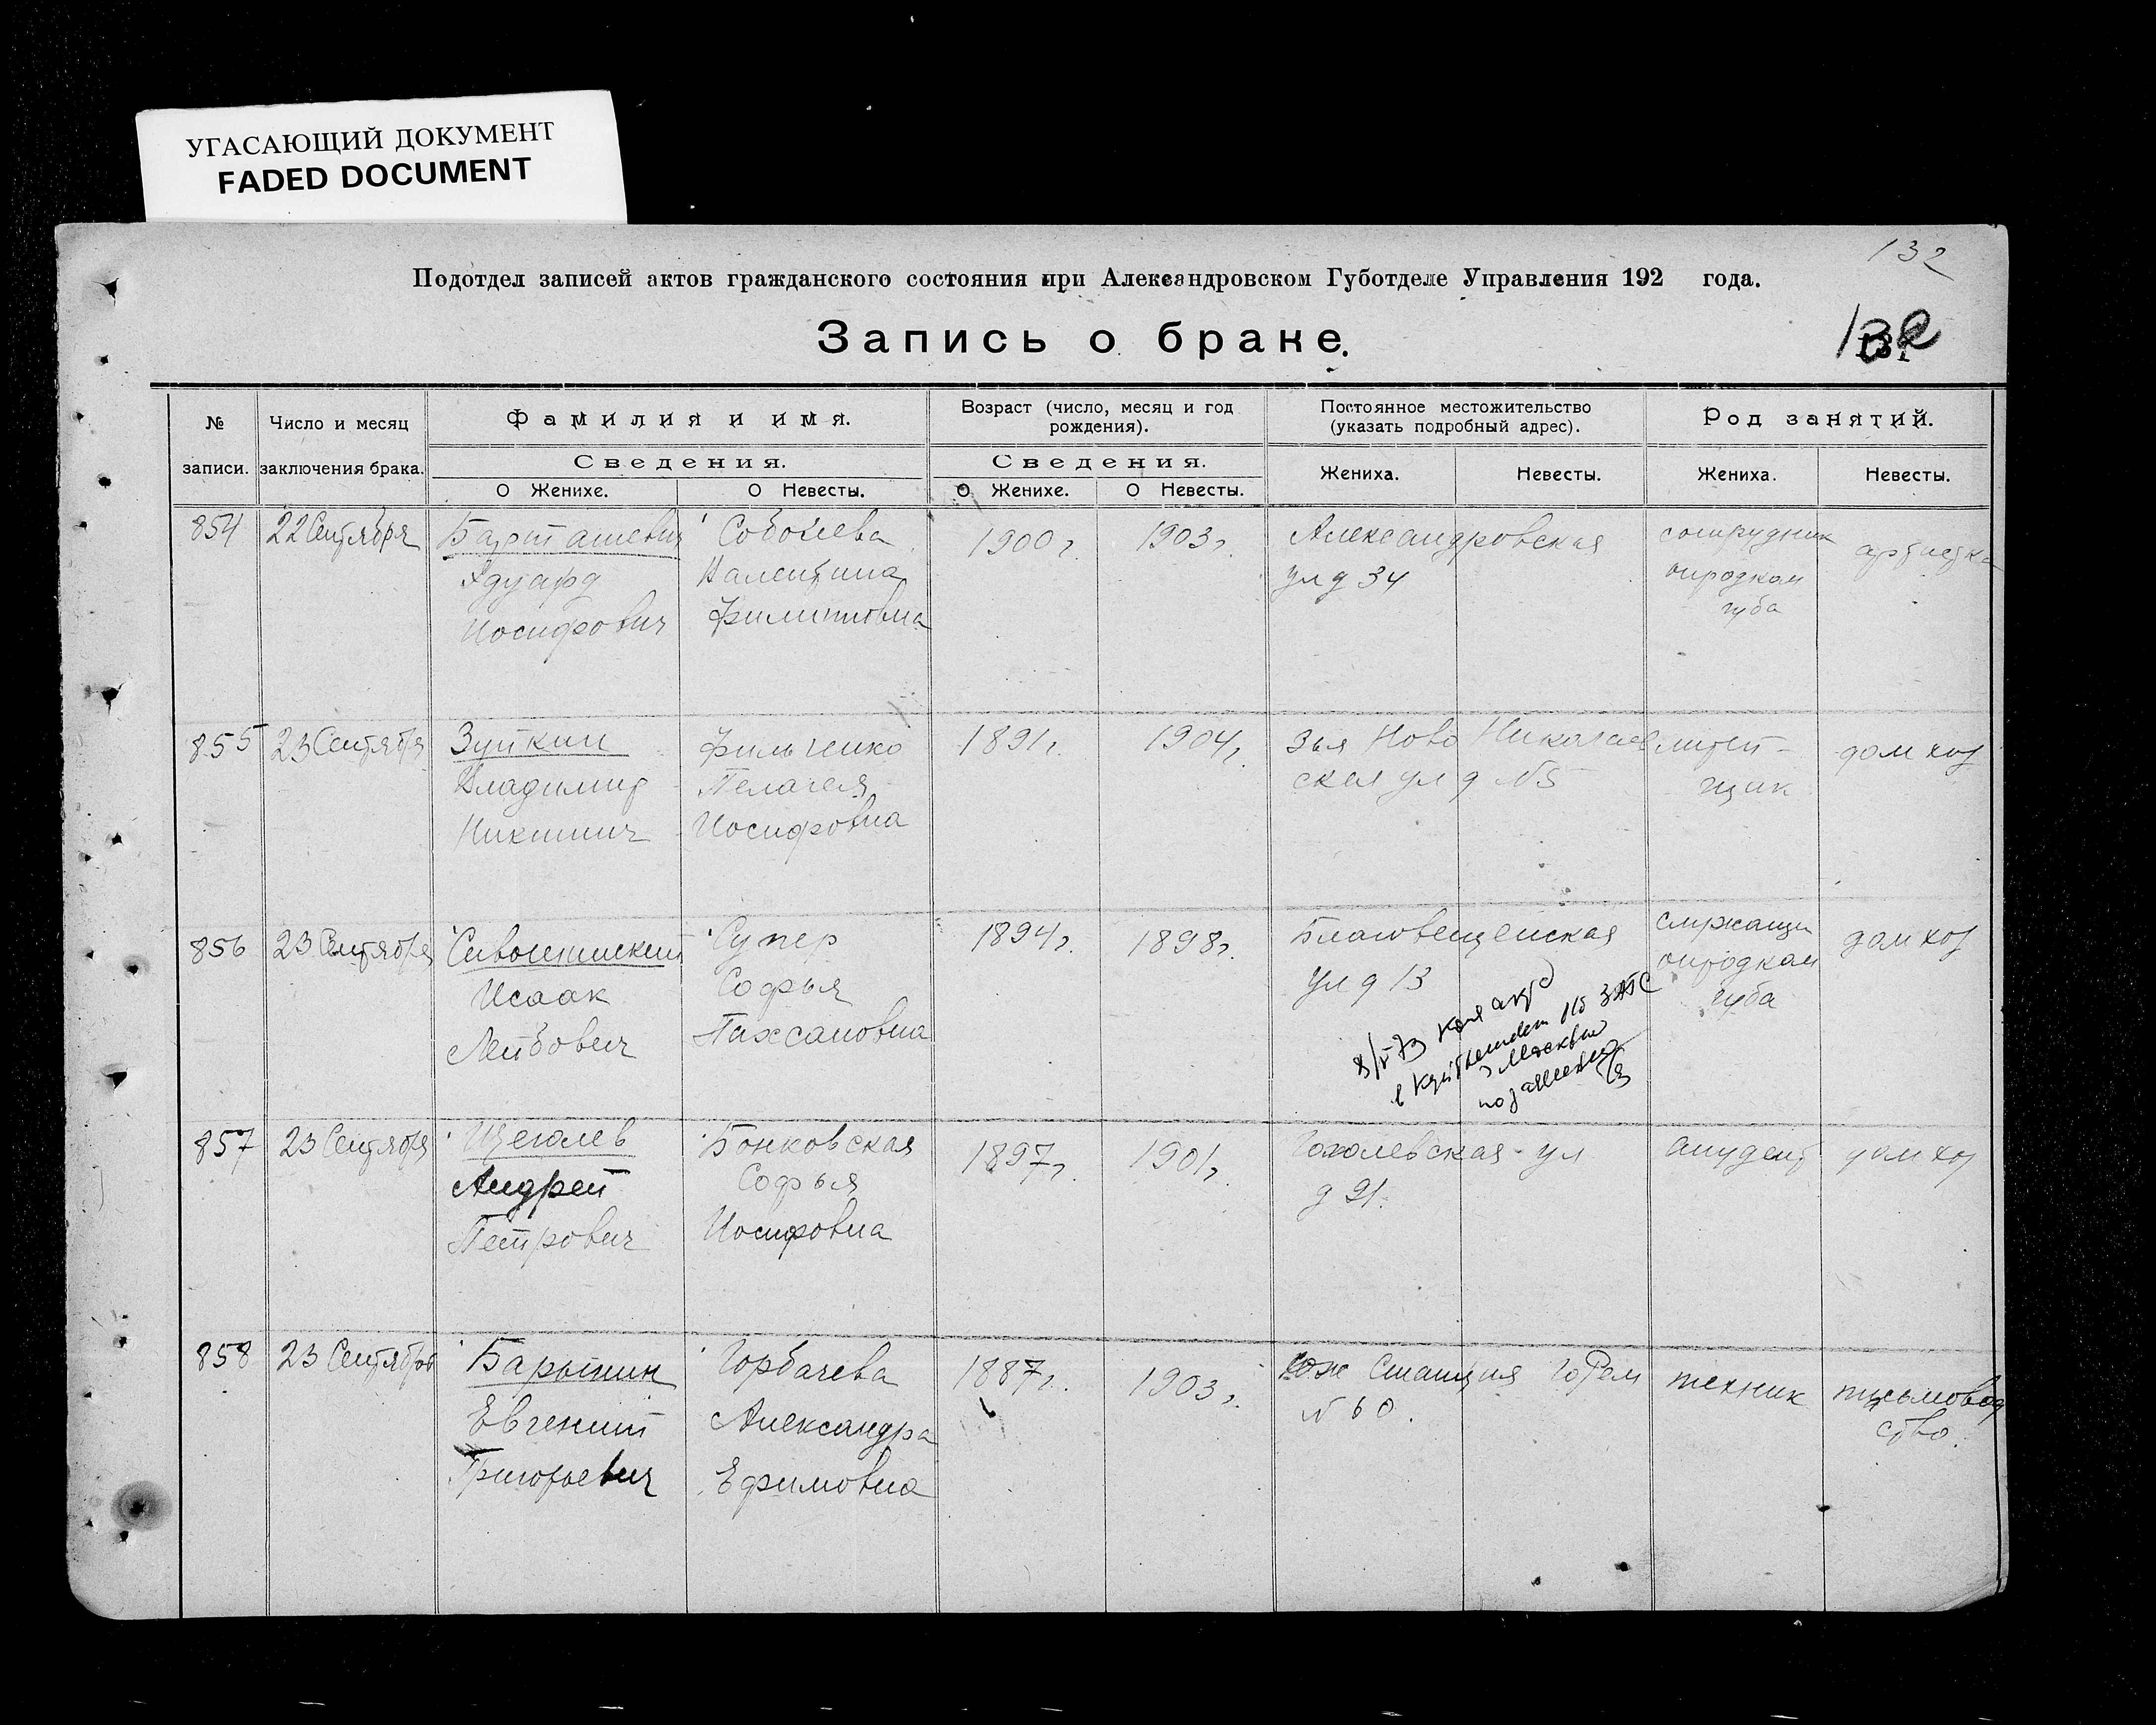 УГАСАЮЩИЙ ДОКУМЕНТ
FADED DOCUMENT
132
Подотдел записей актов гражданского состояния при Александровском Губотделе Управления 192 года.
Запись о браке.
132
№ записи.
Число и месяц заключения брака.
Фамилия и имя.
Сведения.
О Женихе.
О Невесты.
Возраст (число, месяц и год рождения).
Сведения.
О Женихе.
О Невесты.
Постоянное местожительство (указать подробный адрес).
Жениха.
Невесты.
Род занятий.
Жениха.
Невесты.
854
22 Сентября
Барташевич
Эдуард
Иосифович
Соболева
Валентина
Филипповна
1900 г.
1903 г.
Александровская
ул д 34
сотрудник
опродком
губа
артистка
855
23 Сентября
Зуйкин
Владимир
Никитич
Фильченко
Пелагея
Иосифовна
1891 г.
1904 г.
3ья Ново Николаев
ская ул д №5
литей-
щик
дом хоз
856
23 Сентября
Исаак
Лейбович
Супер
Софья
1894 г.
1898 г.
Благовещенская
ул д 13
8/V 73
ЗАГС
Москвы
служащи
опродком
губа
дом хоз
857
23 Сентября
Щеголев
Андрей
Петрович
Бонковская
Софья
Иосифовна
1897 г.
1901 г.
Гоголевская ул
д 21.
студент
дом хоз
858
23 Сентября
Барынин
Евгений
Григорьевич
Горбачева
Александра
Ефимовна
1887 г.
1903 г.
Юж Станция
№ 60.
техник
письмовод
ство.